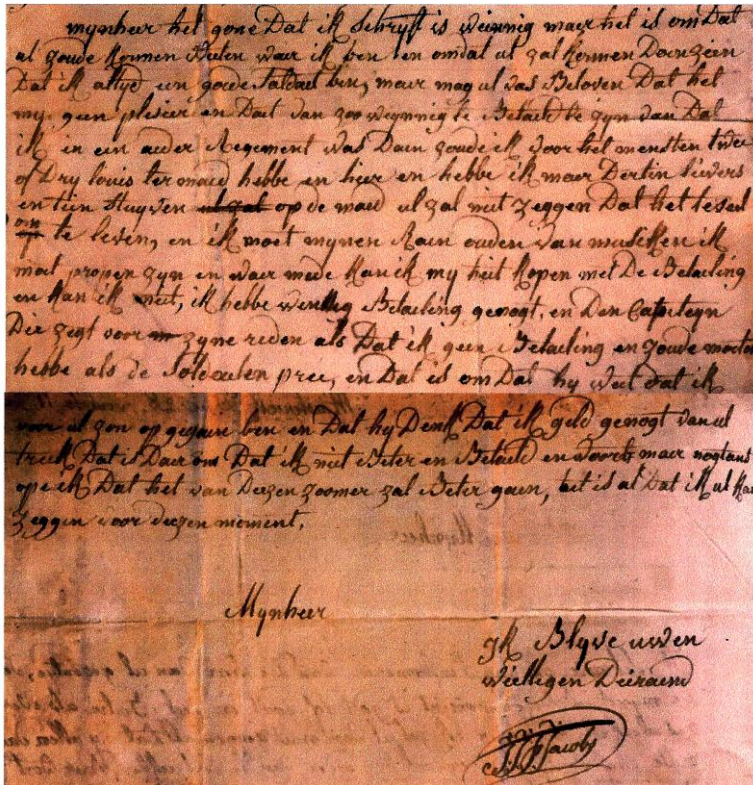 mynheer het gone Dat ik schryft is weinnig maer het is om Dat
ul zoude konnen weten waer ik ben en omdat ul zal konnen Doen zien
Dat ik altyd een goede soldaet ben, maer mag ul vas Beloven Dat het
my geen plesier en Doet van zoo weynnig te Betaelt te zyn van Dat
ik in een ander Regement was Dain zoude ik voor het mensten twee
of Dry louis ter maend hebbe en hier en hebbe ik maer Dertin livers
en tien stuyven ul zal op de maend ul zal niet zeggen Dat het teveel
om te leven, en ik moet mynen Rain ouden van musiken ik
moet propen zyn en waer mede kan ik my heit kopen met De Betaeling
en kan ik niet, ik hebbe wenttig Betaeling genogt, en Den Capiteyn
Die zegt voor zyne reden als Dat ik geen Betaeling en zoude moeten
hebbe als de soldaeten preé, en Dat is omDat hy weet dat ik
voor ul zon op gegaeve ben en Dat hy Denk Dat ik geld genogt van ul
treck Dat is Daer om Dat ik niet Beter en Betaeld en woorts maer nogtans
ope ik Dat het van Deezen zoomer zal Beter gaen, het is al Dat ik ul kan
zeggen voor deezen moment,
Mynheer
Ik Blyve uwen
willigen Deiraend
Jacobs